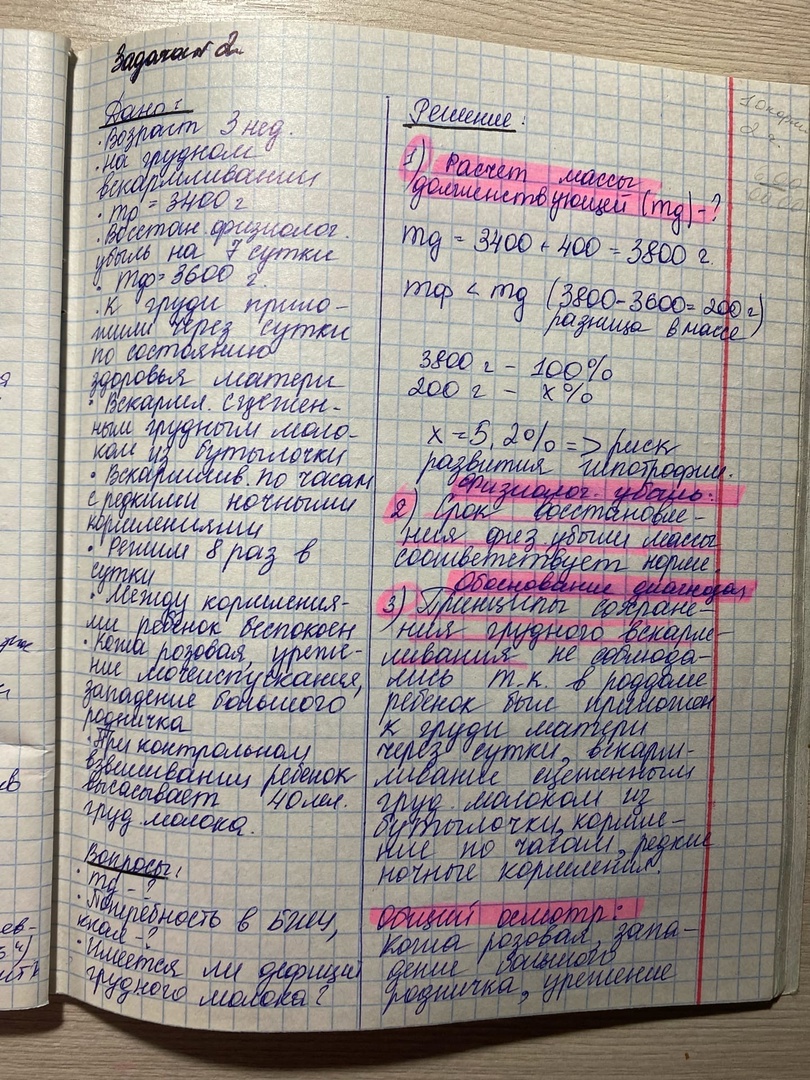 Задача № 2.
Дано:
· Возраст 3 нед.
· На грудном
вскармливании
· mр = 3400 г
· Восстан. физиолог.
убыль на 7 сутки
· mф = 3600 г.
· К груди прило-
жили через сутки
по состоянию
здоровья матери
· Вскармл. сцежен-
ным грудным моло-
ком из бутылочки
· Вскармлив. по часам
с редкими ночными
кормлениями
· Режим 8 раз в
сутки
· Между кормления-
ми ребенок беспокоен
· Кожа розовая, уреже-
ние мочеиспускания,
западение большого
родничка
· При контрольном
взвешивании ребенок
высасывает 40 мл.
груд. молока.
Вопросы:
· mд - ?
· Потребность в БЖУ,
ккал - ?
· Имеется ли дефицит
грудного молока?
Решение:
1) Расчет массы
долженствующей (mд) - ?
mд = 3400 + 400 = 3800 г.
mф < mд (3800 - 3600 = 200 г)
разница в массе
3800 г - 100%
200 г - x%
x = 5,2% => риск
развития гипотрофии.
Физиолог. убыль:
2) Срок восстановле-
ния физ убыли массы
соответствует норме.
Обоснование диагноза,
3) Принципы сохране-
ния грудного вскарм-
ливания не соблюда-
лись т.к. в роддоме
ребенок был приложен
к груди матери
через сутки, вскарм-
ливание сцеженным
груд. молоком из
бутылочки, кормле-
ние по часам, редкие
ночные кормления.
Общий осмотр:
Кожа розовая, запа-
дение большого
родничка, урежение